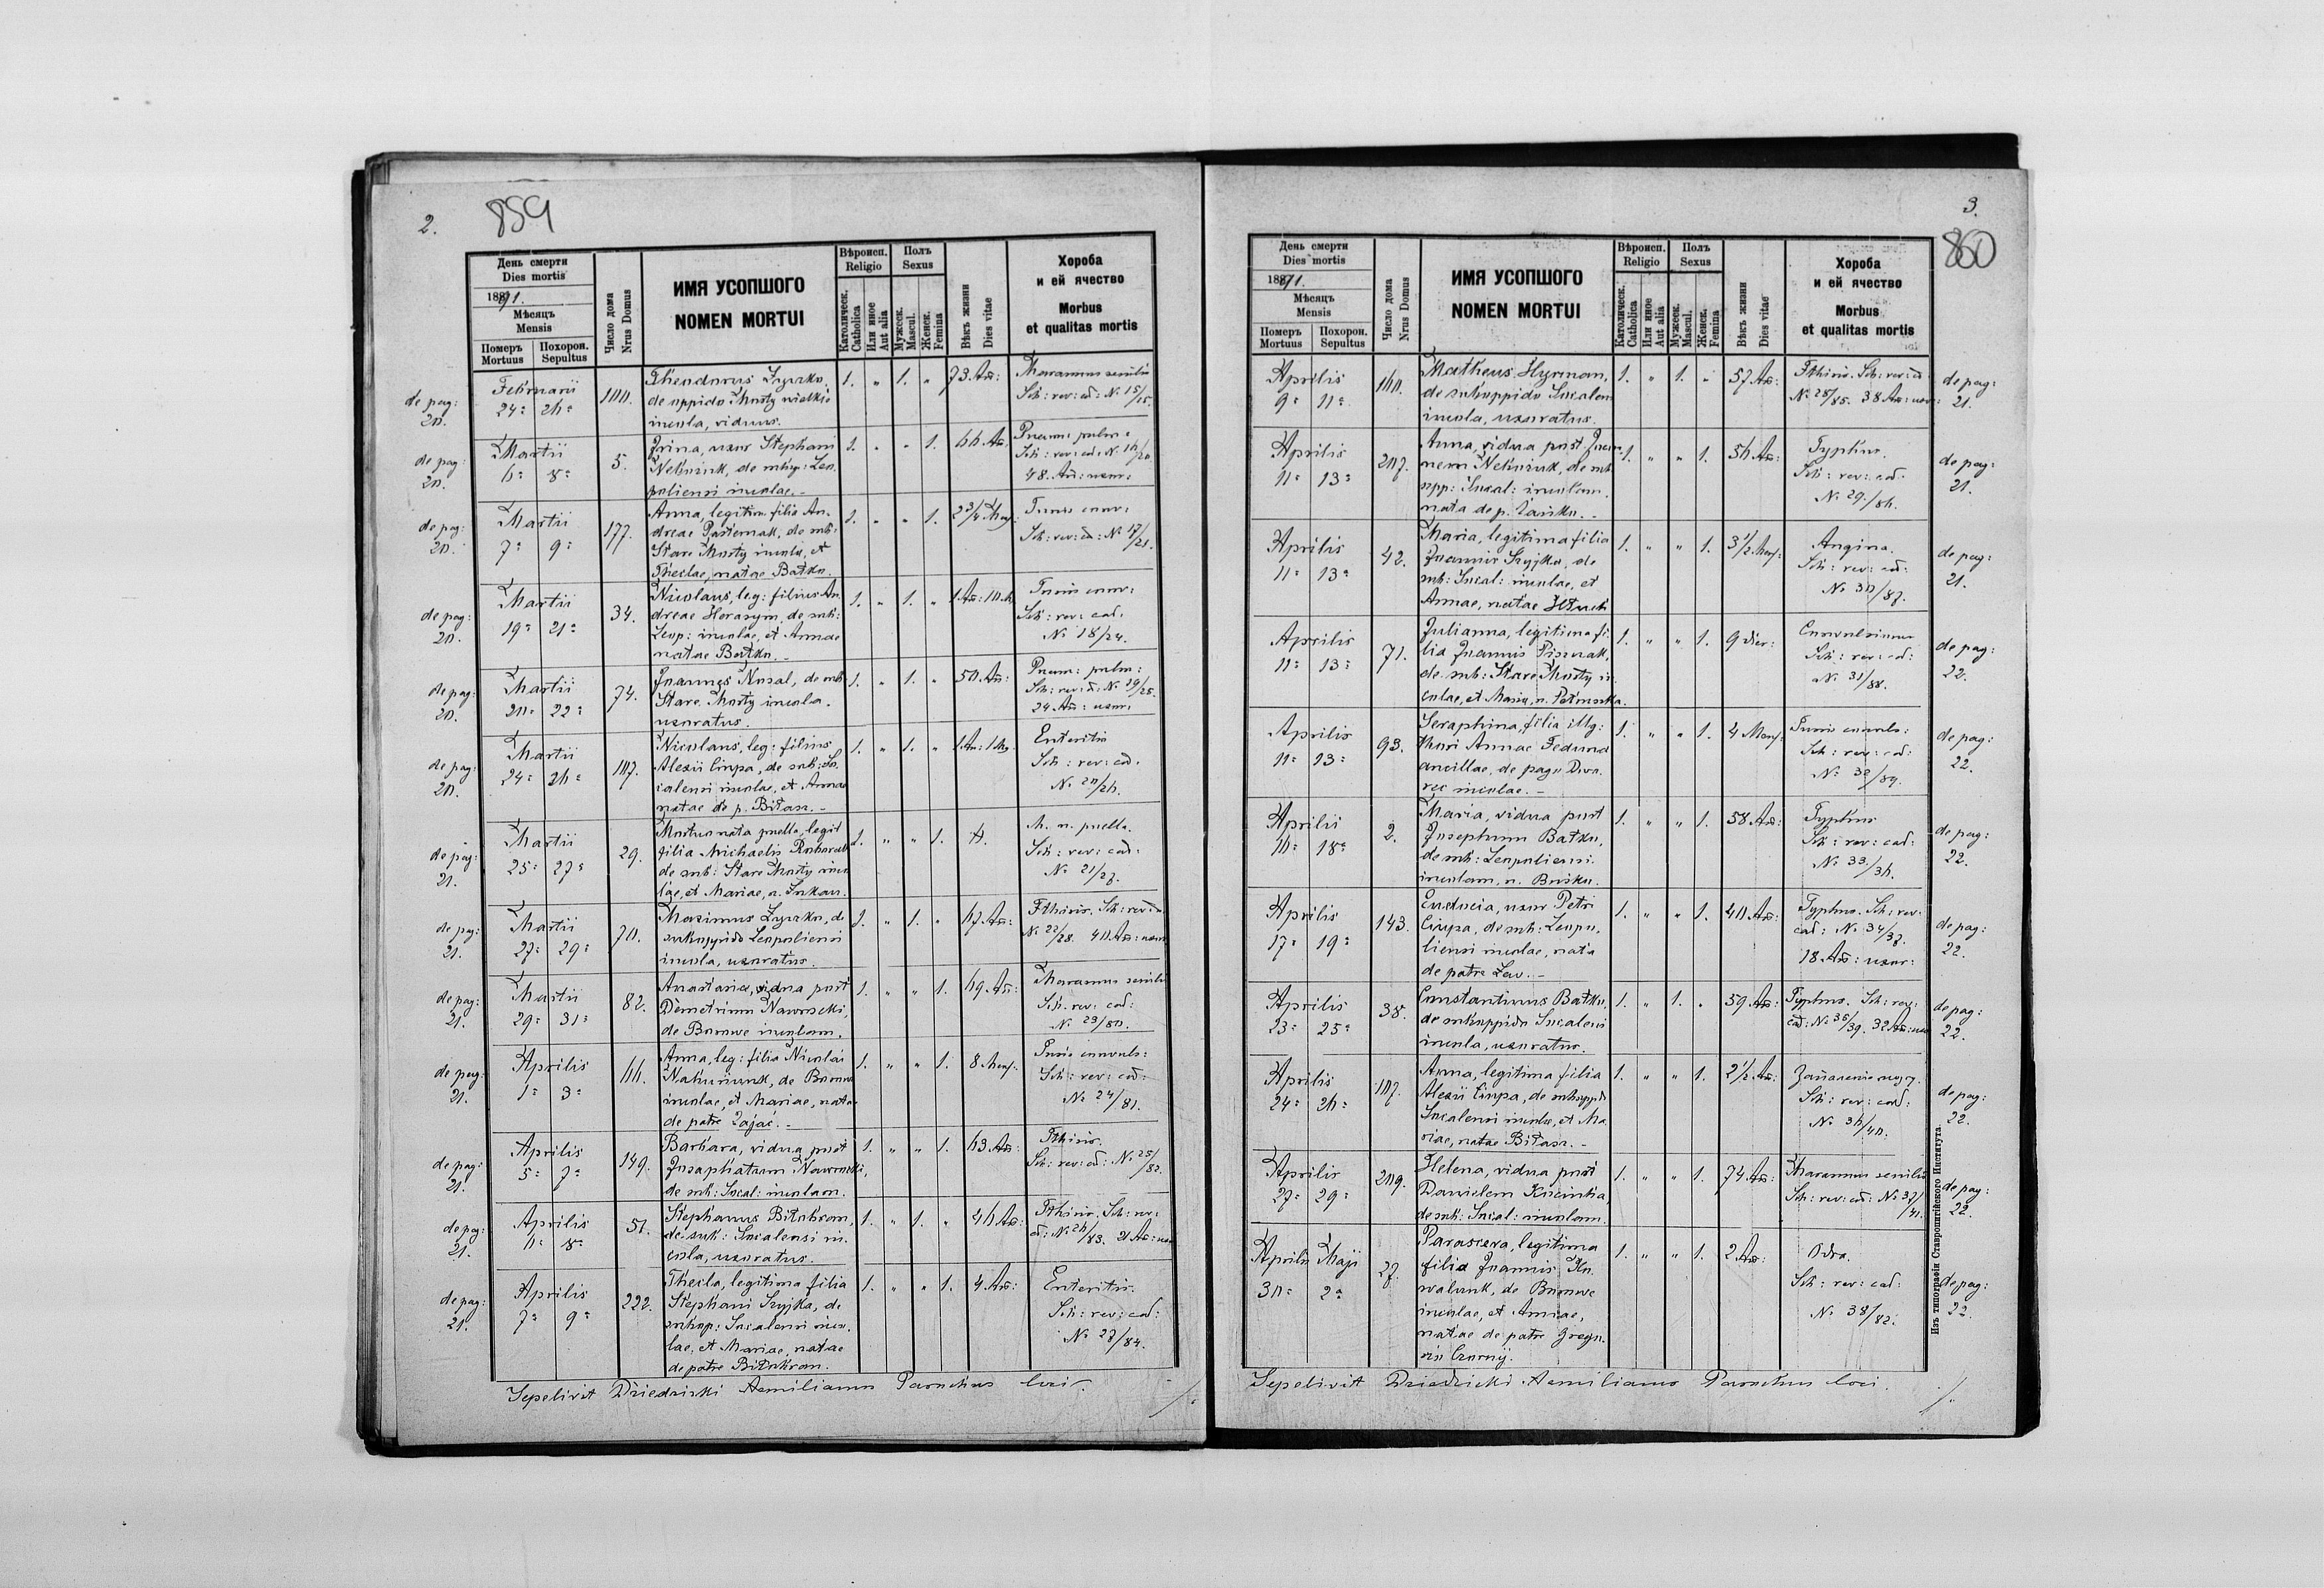 2.
859
День смерти
Dies mortis
1891.
Мѣсяцъ
Mensis
Померъ
Mortuus
Похорон.
Sepultus
Число дома
Nrus Domus
ИМЯ УСОПШОГО
NOMEN MORTUI
Вѣроисп.
Religio
Католическ.
Catholica
Или иное
Aut alia
Полъ
Sexus
Мужеск.
Mascul.
Женск.
Femina
Вѣкъ жизни
Dies vitae
Хороба
и ей ячество
Morbus
et qualitas mortis
de pag: 20.
Februarii 24 26 100.
Theodorus
de oppido Mosty wielkie
incola, viduus.
1. " 1. " 73 An:
Marasmus senilis
Sch: rev: cad: No 15/
de pag: 20.
Martii 6 8 5.
Irina, uxor Stephani
1. " " 1. 66 An:
Pneum: pulm:
48. An: uxor:
de pag: 20.
Martii 7 9 177.
Anna, legitim. filia An-
dreae Pasternak, de sub:
Stare Mosty incolae, et
Theclae, natae Batko.
1. " " 1. 2 3/4 Mens:
Sch: rev: cad: No 17/21.
de pag: 20.
Martii 19 21 34.
Nicolaus, leg: filius An-
dreae Herasym, de sub:
Leop: incolae, et Annae
natae Batko. -
1. " 1. " 1 An: 10 M.
Sch: rev: cad:
No 18/24.
de pag: 20.
Martii 20 22 74.
Joannes Kosal, de sub
Stare Mosty incola.
uxoratus.
1. " 1. " 50 An:
Pneum: pulm:
Sch: rev: cad: No 19/25.
24 An: uxor:
de pag: 20.
Martii 24 26 107.
Nicolaus, leg: filius
Alexii Ciupa, de sub: So-
calensi incolae, et Annae
natae de p. Bilasz. -
1. " 1. " 1 An: 1 M.
Enteritis
Sch: rev: cad:
No 20/26.
de pag: 21.
Martii 25 27 29.
Mortuo nata puella, legit
filia Michaelis
de sub: Stare Mosty inco
lae, et Mariae, n.
1. " " 1.
M. n. puella.
Sch: rev: cad:
No 21/27.
de pag: 21.
Martii 27 29 70.
Maximus
suboppido Leopoliensi
incola, uxoratus.
1. " 1. " 67 An:
Fthisis. Sch: rev: cad
No 22/28. 40 An: uxor
de pag: 21.
Martii 29 31 82.
Anastasia, vidua post
Demetrium Naworocki,
de Borowe incolam.
1. " " 1. 69 An:
Marasmus senilis
Sch: rev: cad:
No 23/80.
de pag: 21.
Aprilis 1 3 66.
Anna, leg: filia Nicolai
de Borowe
incolae, et Mariae, nata
de patre Zając. -
1. " " 1. 8 Mens:
Tussis convuls:
Sch: rev: cad:
No 24/81.
de pag: 21.
Aprilis 5 7 149.
Barbara, vidua post
Josaphatum Naworocki,
de sub: Socal: incolam.
1. " " 1. 63 An:
Fthisis.
Sch: rev: cad: No 25/82.
de pag: 21.
Aprilis 6 8 51.
Stephanus Bilobram,
de sub: Socalensi in-
cola, uxoratus.
1. " 1. " 46 An:
Fthisis. Sch: rev:
cad: No 26/83. 21 An: uxor
de pag: 21.
Aprilis 7 9 222.
Thecla, legitima filia
Stephani Szyjka, de
subop: Socalensi inco-
lae, et Mariae, natae
de patre Bilobram.
1. " " 1. 4 An:
Enteritis.
Sch: rev: cad:
No 27/84.
Sepelivit Dziedzicki Aemilianus Parochus loci.
3.
860
День смерти
Dies mortis
1891.
Мѣсяцъ
Mensis
Померъ
Mortuus
Похорон.
Sepultus
Число дома
Nrus Domus
ИМЯ УСОПШОГО
NOMEN MORTUI
Вѣроисп.
Religio
Католическ.
Catholica
Или иное
Aut alia
Полъ
Sexus
Мужеск.
Mascul.
Женск.
Femina
Вѣкъ жизни
Dies vitae
Хороба
и ей ячество
Morbus
et qualitas mortis
Aprilis 9 11 160.
Matheus Hyrman,
de suboppido Socalen
incola, uxoratus.
1. " 1. " 57 An:
Fthisis. Sch: rev: cad
No 28/85. 38 An: uxor:
de pag: 21.
Aprilis 11 13 207.
Anna, vidua post Joan-
nem
opp: Socal: incolam.
nata de p. Zańko. -
1. " " 1. 56 An:
Typhus.
Sch: rev: cad:
No 29/86.
de pag: 21.
Aprilis 11 13 42.
Maria, legitima filia
Joannis Szyjka, de
sub: Socal: incolae, et
Annae, natae
1. " " 1. 3 1/2 Mens:
Angina.
Sch: rev: cad:
No 30/87.
de pag: 21.
Aprilis 11 13 71.
Julianna, legitima fi-
lia Joannis Piszczak,
de sub: Stare Mosty in-
colae, et Mariae, n.
1. " " 1. 9 dier:
Convulsiones
Sch: rev: cad:
No 31/88.
de pag: 22.
Aprilis 11 13 93.
Seraphina, filia illeg:
thori Annae Feduna
ancillae, de pago Dwo-
rec incolae. -
1. " " 1. 4 Mens:
Tussis convuls:
Sch: rev: cad:
No 32/89.
de pag: 22.
Aprilis 16 18 2.
Maria, vidua post
Josephum Batko,
de sub: Leopoliensi
incolam, n. Busko.
1. " " 1. 58 An:
Typhus
Sch: rev: cad:
No 33/36.
de pag: 22.
Aprilis 17 19 143.
Eudocia, uxor Petri
Ciupa, de sub: Leopo-
liensi incolae, nata
de patre Lew. -
1. " " 1. 40 An:
Typhus. Sch: rev:
cad: No 34/37.
18 An: uxor:
de pag: 22.
Aprilis 23 25 38.
Constantinus Batko,
de suboppido Socalensi
incola, uxoratus.
1. " 1. " 59 An:
Typhus. Sch: rev:
cad: No 35/39. 32 An: uxo
de pag: 22.
Aprilis 24 26 107.
Anna, legitima filia
Alexii Ciupa, de suboppido
Socalensi incolae, et Ma-
riae, natae Bilasz. -
1. " " 1. 2 1/2 An:
Sch: rev: cad:
No 36/40.
de pag: 22.
Aprilis 27 29 209.
Helena, vidua post
Danielem
de sub: Socal: incolam.
1. " " 1. 74 An:
Marasmus senilis
Sch: rev: cad: No 37/41.
de pag: 22.
Aprilis Maji 30 2 27.
Parasceva, legitima
filia Joannis Ko-
waluk, de Borowe
incolae, et Annae,
natae de patre Grego-
rio Czornij.
1. " " 1. 2 An:
Odra.
Sch: rev: cad:
No 38/82.
de pag: 22.
Изъ типографіи Ставропигійского Института
Sepelivit Dziedzicki Aemilianus Parochus loci.